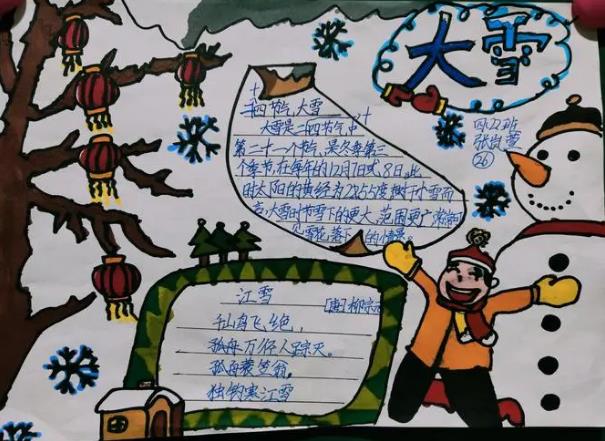 大雪
四22班
张岚萱
26
二十四节气,大雪
大雪是二十四节气中
第二十一个节气,是冬季第三
个季节,在每年的12月7日或8日,此
时太阳的黄经为255度,相对于小雪而
言,大雪时节雪下的更大,范围更广,常常可
见雪花落下的情景。
江雪
[唐]柳宗元
千山鸟飞绝,
孤舟万径人踪灭。
孤舟蓑笠翁,
独钓寒江雪